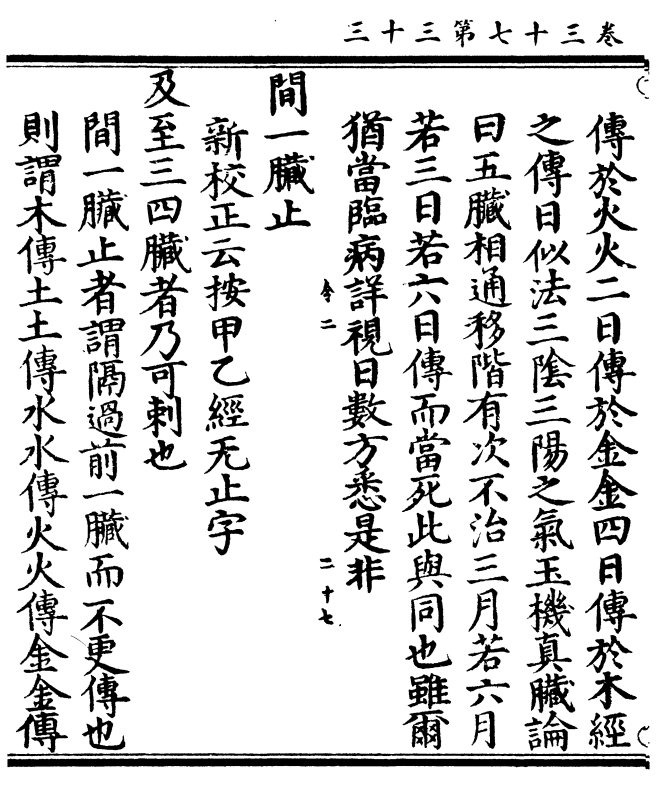 卷三十七第三十三
傳於火火二日傳於金金四日傳於木經
之傳日似法三陰三陽之氣玉機真臟論
曰五臟相通移階有次不治三月若六月
若三日若六日傳而當死此與同也雖爾
猶當臨病詳視日數方悉是非
令二
二十七
間一臟止
新校正云按甲乙經无止字
及至三四臟者乃可刺也
間一臟止者謂隔過前一臟而不更傳也
則謂木傳土土傳水水傳火火傳金金傳